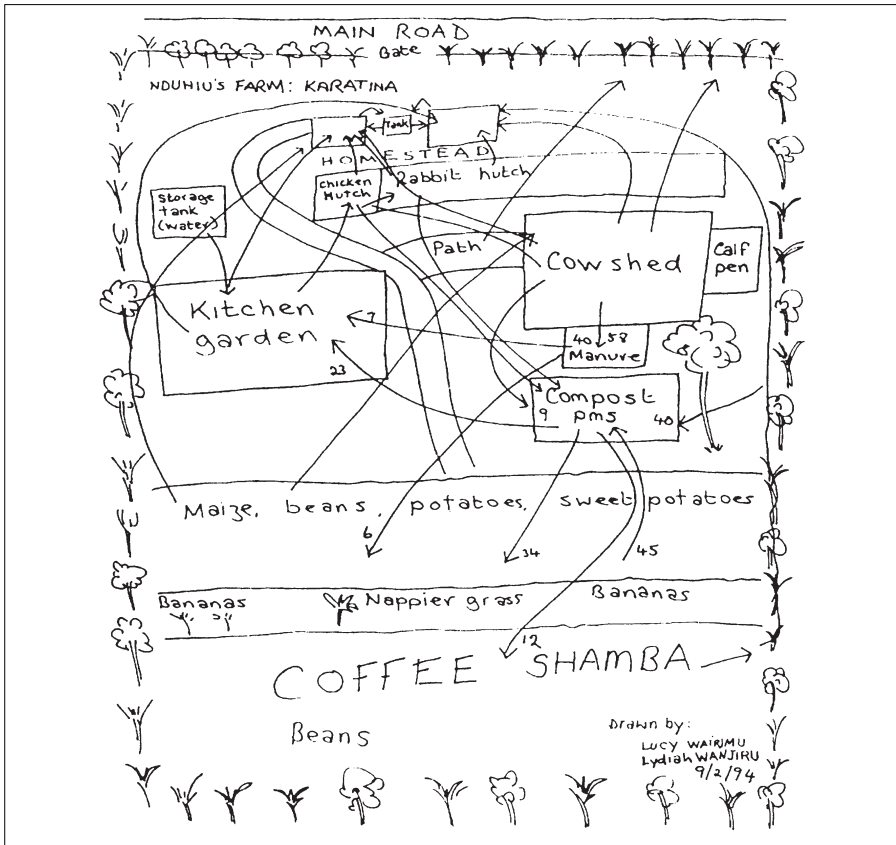 MAIN ROAD
Gate
NDUHIU'S FARM: KARATINA
Tank
HOMESTEAD
Chicken
Hutch
Rabbit hutch
Storage
tank
(water)
Path
Cowshed
Calf
pen
Kitchen
garden
7
23
40 58
Manure
Compost
9 pms 40
Maize, beans, potatoes, sweet potatoes
6
34
45
Bananas
Nappier grass
Bananas
12
COFFEE SHAMBA
Beans
Drawn by:
LUCY WAIRIMU
Lydiah WANJIRU
9/2/94